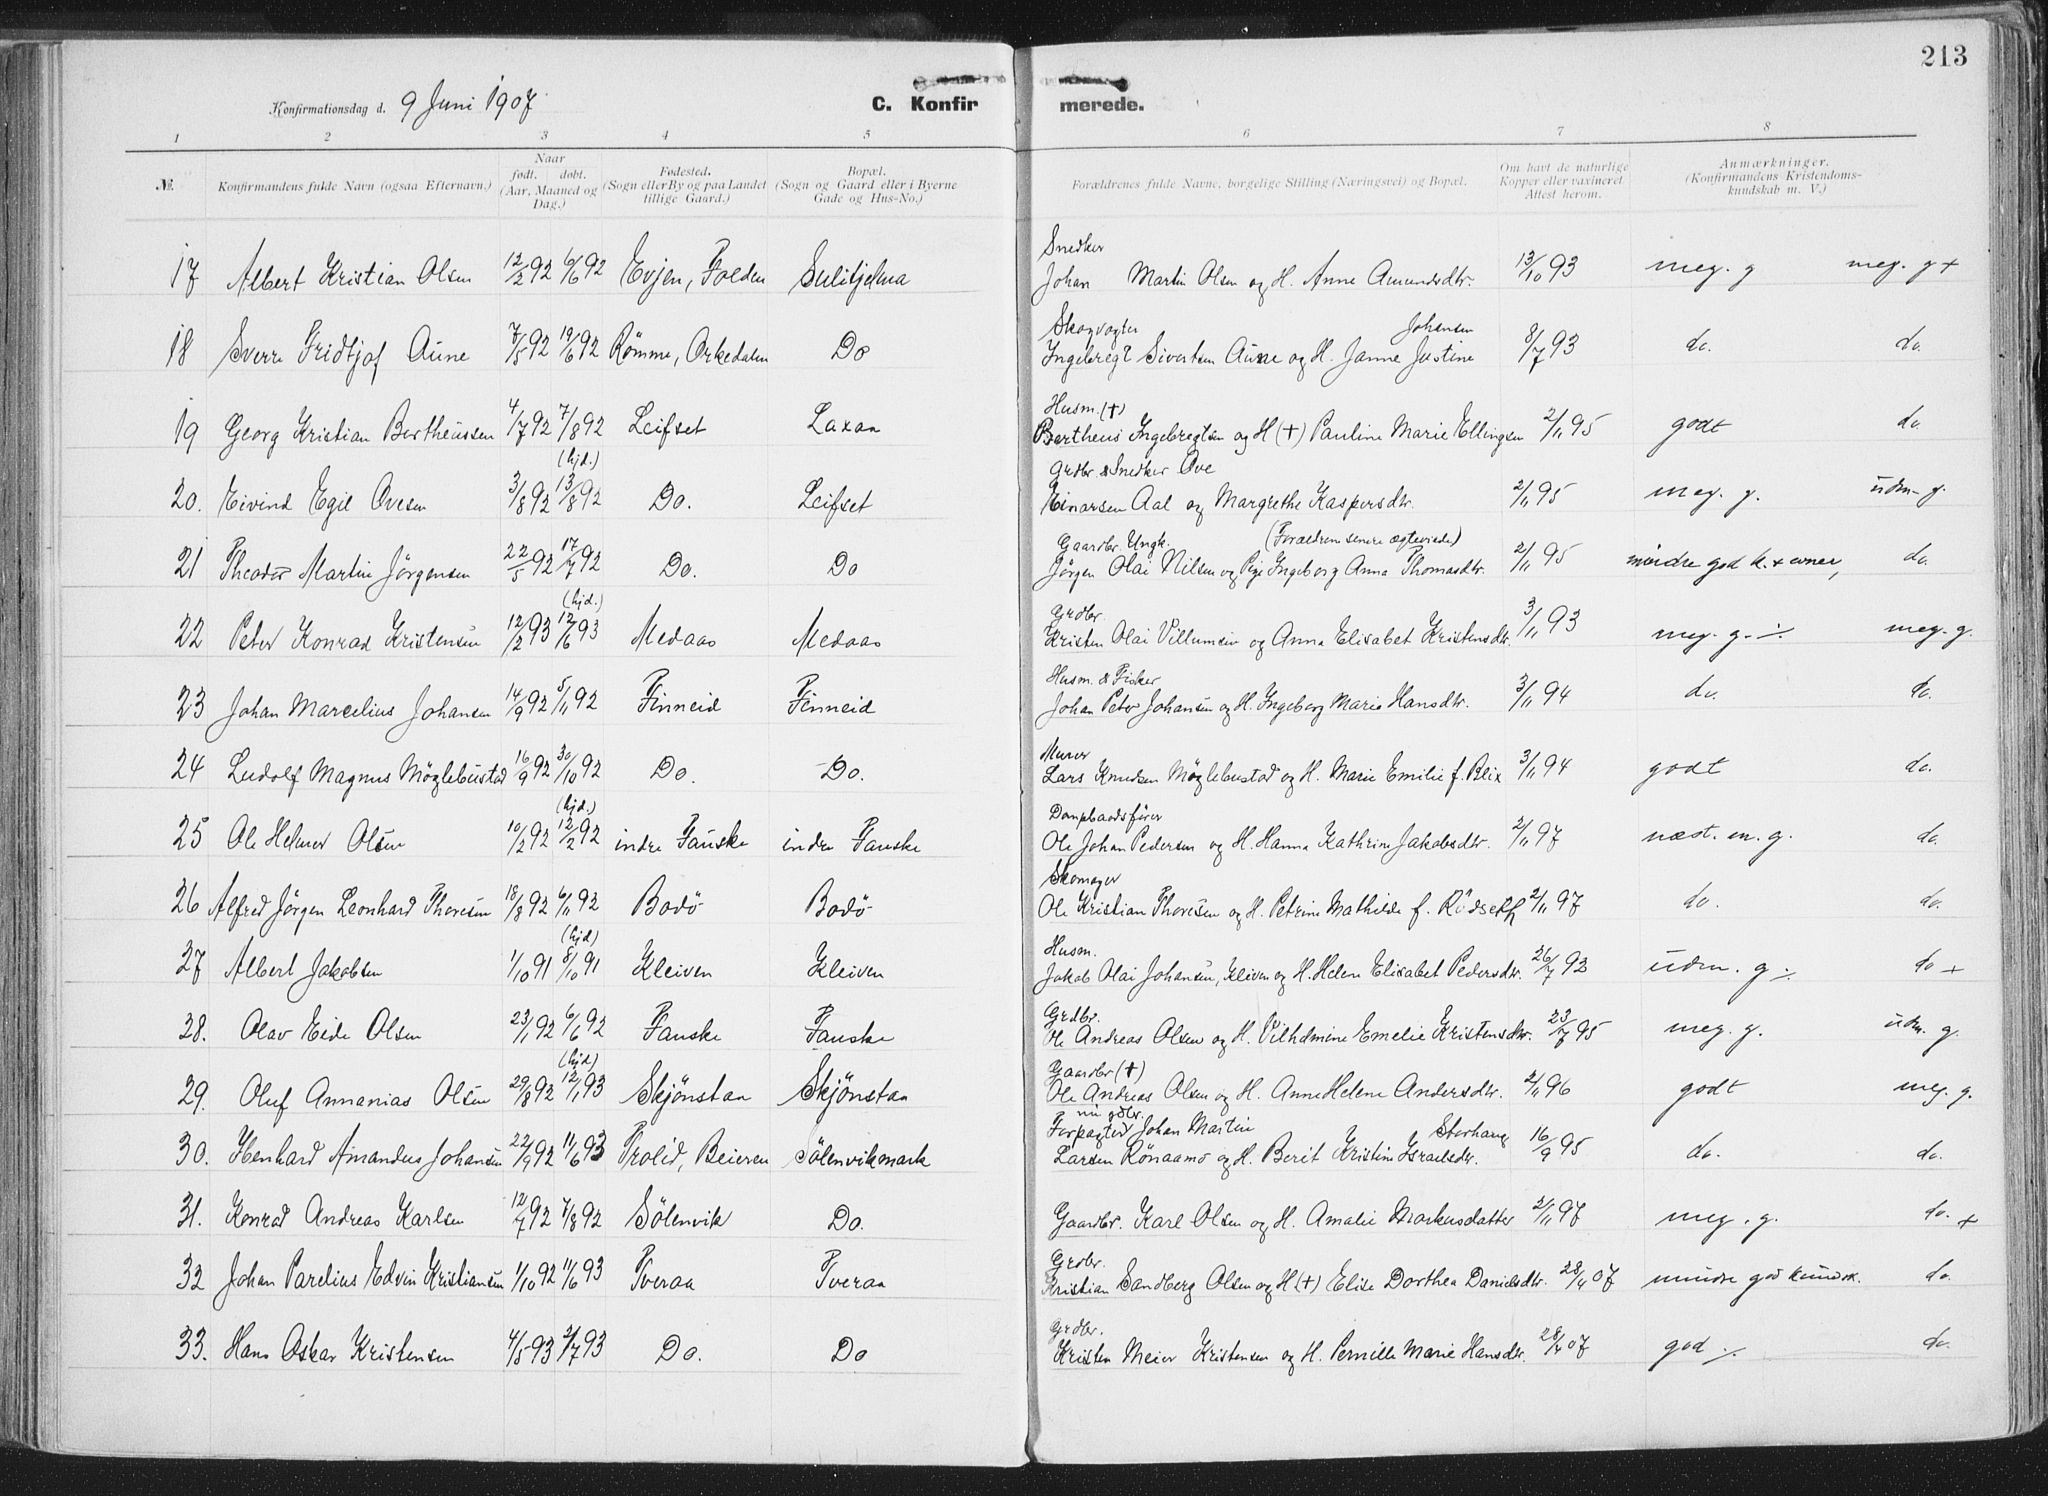 213
Konfirmationsdag d. 9 Juni 1907
C. Konfir merede.
1 2 3 4 5 6 7 8
№. Konfirmandens fulde Navn (ogsaa Efternavn.) Naar født. døbt. (Aar, Maaned og Dag.) Fødested. (Sogn eller By og paa Landet tillige Gaard.) Bopæl. (Sogn og Gaard eller i Byerne Gade og Hus-No.) Forældrenes fulde Navne, borgelige Stilling (Næringsvei) og Bopæl. Om havt de naturlige Kopper eller vaxineret Attest herom. Anmærkninger. (Konfirmandens Kristendoms-kundskab m. V.)
Snedker
17 Albert Kristian Olsen 12/2 92 6/6 92 Evjen, Folden Sulitjelma Johan Martin Olsen og H. Anne Amundsdtr. 13/10 93 meg. g meg. g +
Skogvogter Johansen
18 Sverre Fridtjof Aune 7/5 92 19/6 92 Römme, Orkedalen Do Ingebregt Sivertsen Aune og H. Janne Justine 8/7 93 do. do.
Husm. (†)
19 Georg Kristian Bertheussen 4/7 92 7/8 92 Leifset Laxaa Bertheus Ingebregtsen og H (†) Pauline Marie Ellingsen 2/11 95 godt do
(hjd.) Grdbr. & Snedker Ove
20. Eivind Egil Ovesen 3/8 92 13/8 92 Do. Leifset Einarsen Aal og Margrethe Kaspersdtr. 2/11 95 meg. g. udm. g.
Gaardbr. Ungk. (Forældrene senere ægteviede)
21 Theodor Martin Jörgensen 22/5 92 17/7 92 Do. Do Jörgen Olai Nilsen og Pige Ingeborg Anna Thomasdtr. 2/11 95 mindre god k. + evner, do.
(hjd.) Grdbr.
22 Peter Konrad Kristensen 12/2 93 12/6 93 Medaas Medaas Kristen Olai Villumsen og Anna Elisabet Kristensdtr. 3/11 93 meg. g. ⁒ meg. g.
Husm. & Fisker
23 Johan Marcelius Johansen 14/9 92 5/11 92 Finneid Finneid Johan Peter Johansen og H. Ingeborg Marie Hansdtr. 3/11 94 do. do.
Murer
24 Ludolf Magnus Möglebustad 16/9 92 30/10 92 Do. Do. Lars Knudsen Möglebustad og H. Marie Emilie f. Blix 3/11 94 godt do.
(hjd.) Dampbaadsförer
25 Ole Helmer Olsen 10/2 92 12/2 92 indre Fauske indre Fauske Ole Johan Pedersen og H. Hanna Kathrine Jakobsdtr. 2/11 97 næst. m. g. do.
Skomager
26 Alfred Jörgen Leonhard Thoresen 18/8 92 6/11 92 Bodö Bodö Ole Kristian Thoresen og H. Petrine Mathilde f. Rödseth 2/11 97 do. do.
(hjd) Husm.
27 Albert Jakobsen 1/10 91 8/10 91 Kleiven Kleiven Jakob Olai Johansen, Kleiven og H. Helene Elisabet Pedersdtr. 26/7 92 udm. g ⁒ do +
Grdbr.
28. Olav Eide Olsen 23/1 92 6/6 92 Fauske Fauske Ole Andreas Olsen og H. Vilhelmine Emelie Kristensdtr. 23/7 95 meg. g. udm. g.
(hjd) Gaardbr (†)
29. Oluf Annanias Olsen 29/8 92 12/1 93 Skjönstaa Skjönstaa Ole Andreas Olsen og H. Anne Helene Andersdtr. 2/11 96 godt meg. g.
nu gdbr.
Forpagter Johan Martin Storhaug
30. Henhard Amandus Johansen 22/9 92 11/6 93 Trolid, Beieren Sölenvikmark Larsen Rönaamo og H. Berit Kristine Israelsdtr. 16/9 95 do. do.
31. Konrad Andreas Karlsen 12/7 92 7/8 92 Sölenvik Do. Gaardbr. Karl Olsen og H. Amalie Markusdatter 2/11 97 meg. g. do. +
Grdbr.
32 Johan Parelius Edvin Kristiansen 1/10 92 11/6 93 Tveraa Tveraa Kristian Sandberg Olsen og H (†) Elise Dorthea Danielsdtr. 28/4 07 mindre god kundsk. do.
Grdbr.
33. Hans Oskar Kristensen 4/5 93 2/7 93 Do. Do Kristen Meier Kristensen og H. Pernille Marie Hansdtr. 28/4 07 god ⁒ do.